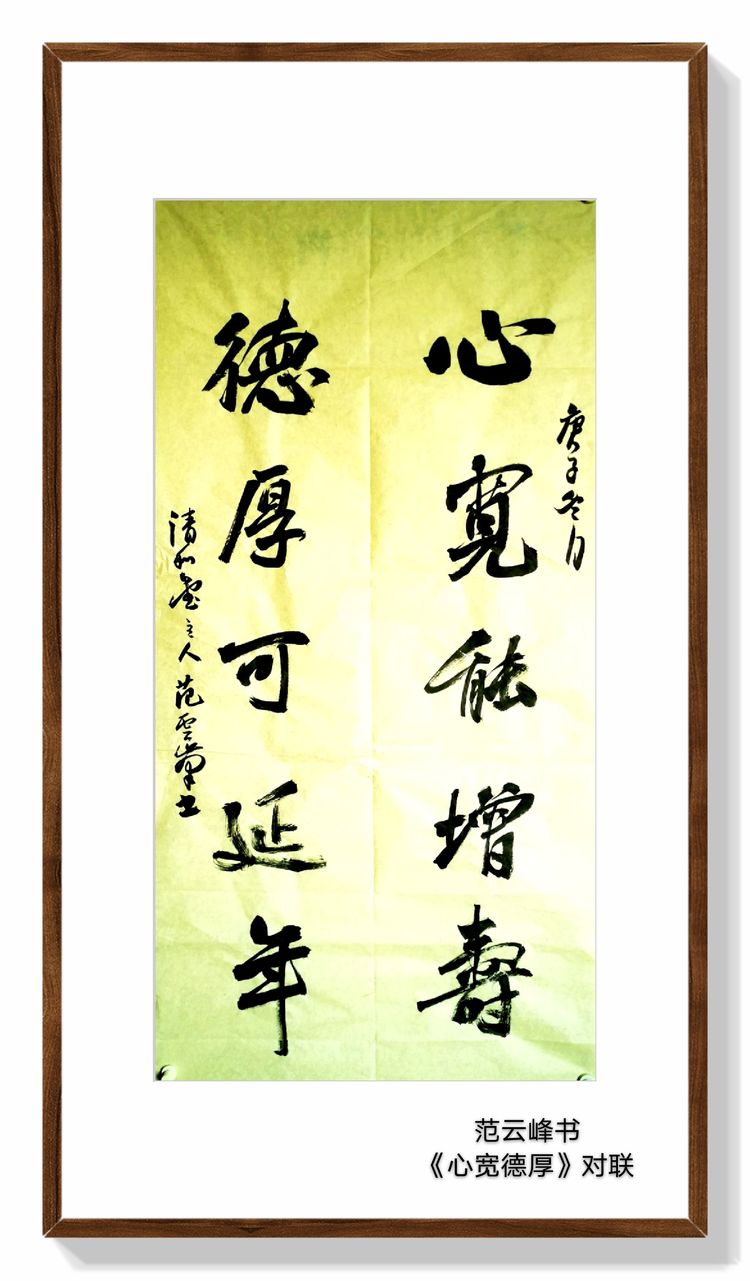 庚子冬月
心寬能增壽
德厚可延年
清和堂主人范云峰书
范云峰书
《心宽德厚》对联